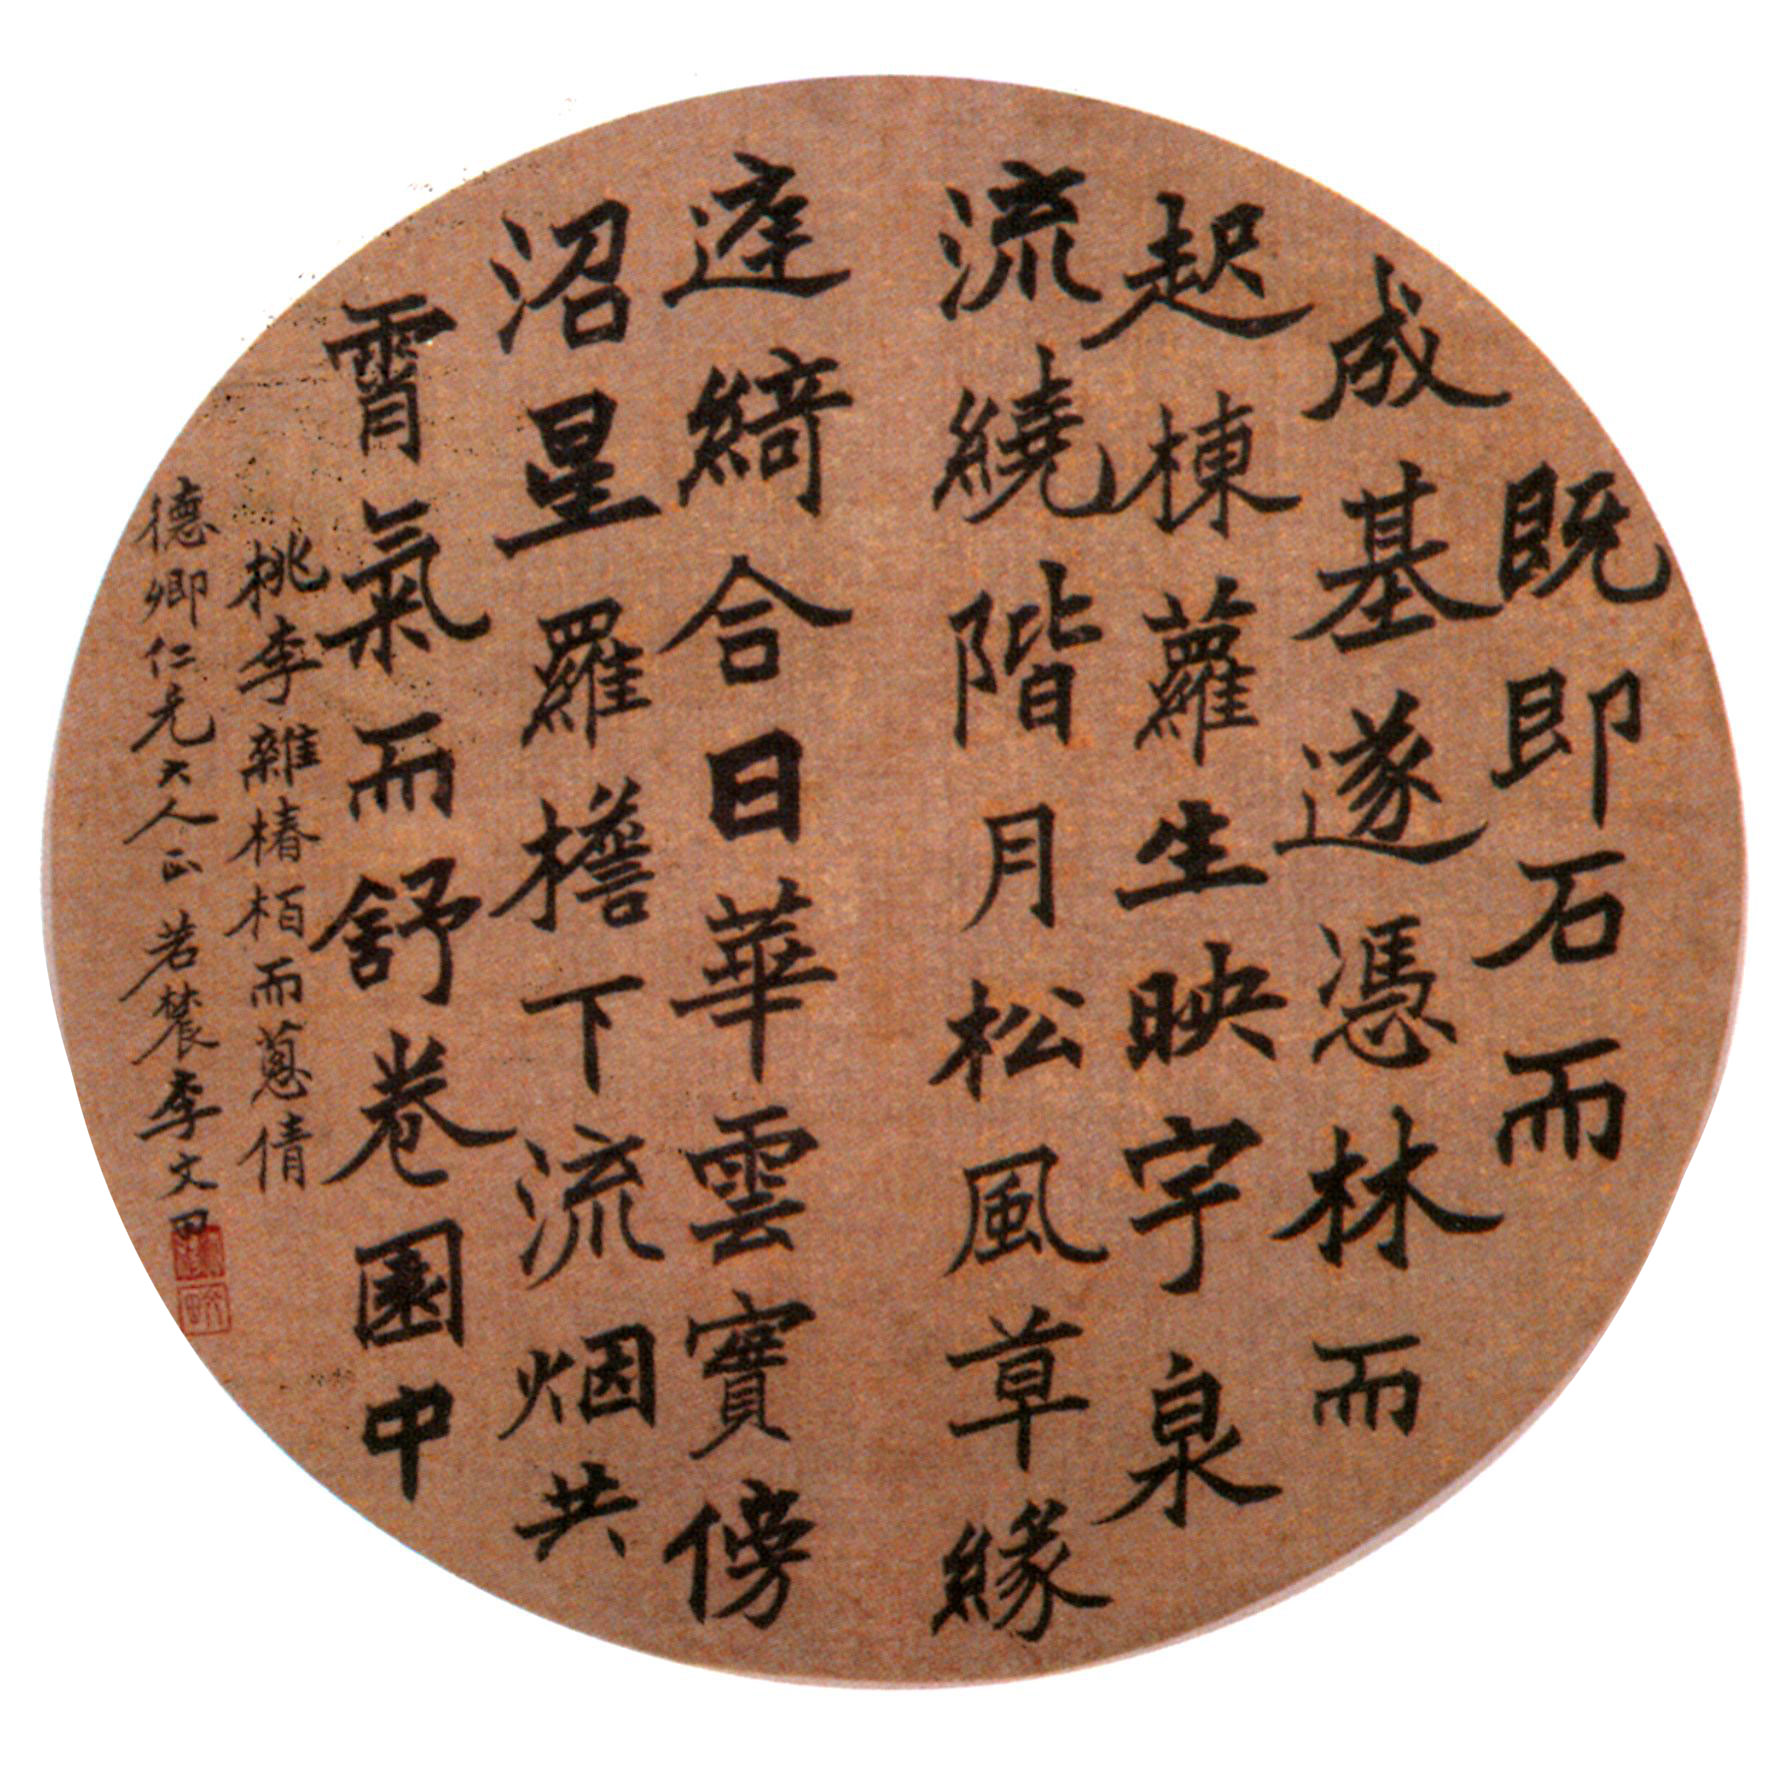 既即石而
成基遂憑林而
起棟蘿生映宇泉
流繞階月松風草緣
庭綺合日華雲實傍
沼星羅檐下流烟共
霄氣而舒卷園中
桃李雜椿柏而蔥倩
德卿仁兄大人正 若農李文田